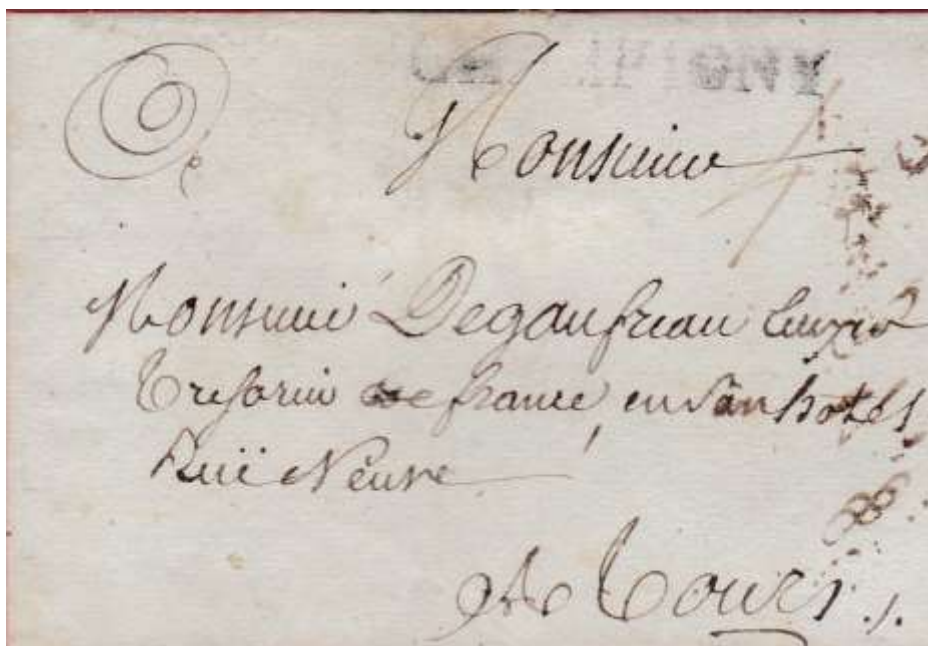 Monsieur
Monsieur Degaufreau
Tresorier de france, en son hotel
Ruë Neuve
A Tours